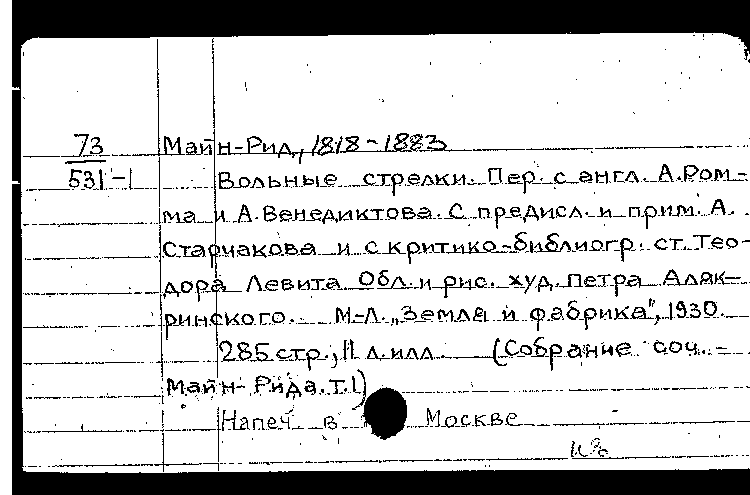 73 Майн-Рид, 1818-1883
531-1 Вольные стрелки. Пер. с англ. А.Ром-
ма и А.Венедиктова. С предисл. и прим. А.
Старчакова и с критико-библиогр. ст. Тео-
дора Левита. Обл. и рис. худ. Петра Аляк-
ринского. М-Л. „Земля и фабрика", 1930.
285 стр.; 11 л. илл. (Собрание соч. -
Майн-Рида. т.1)
Напеч. в Москве